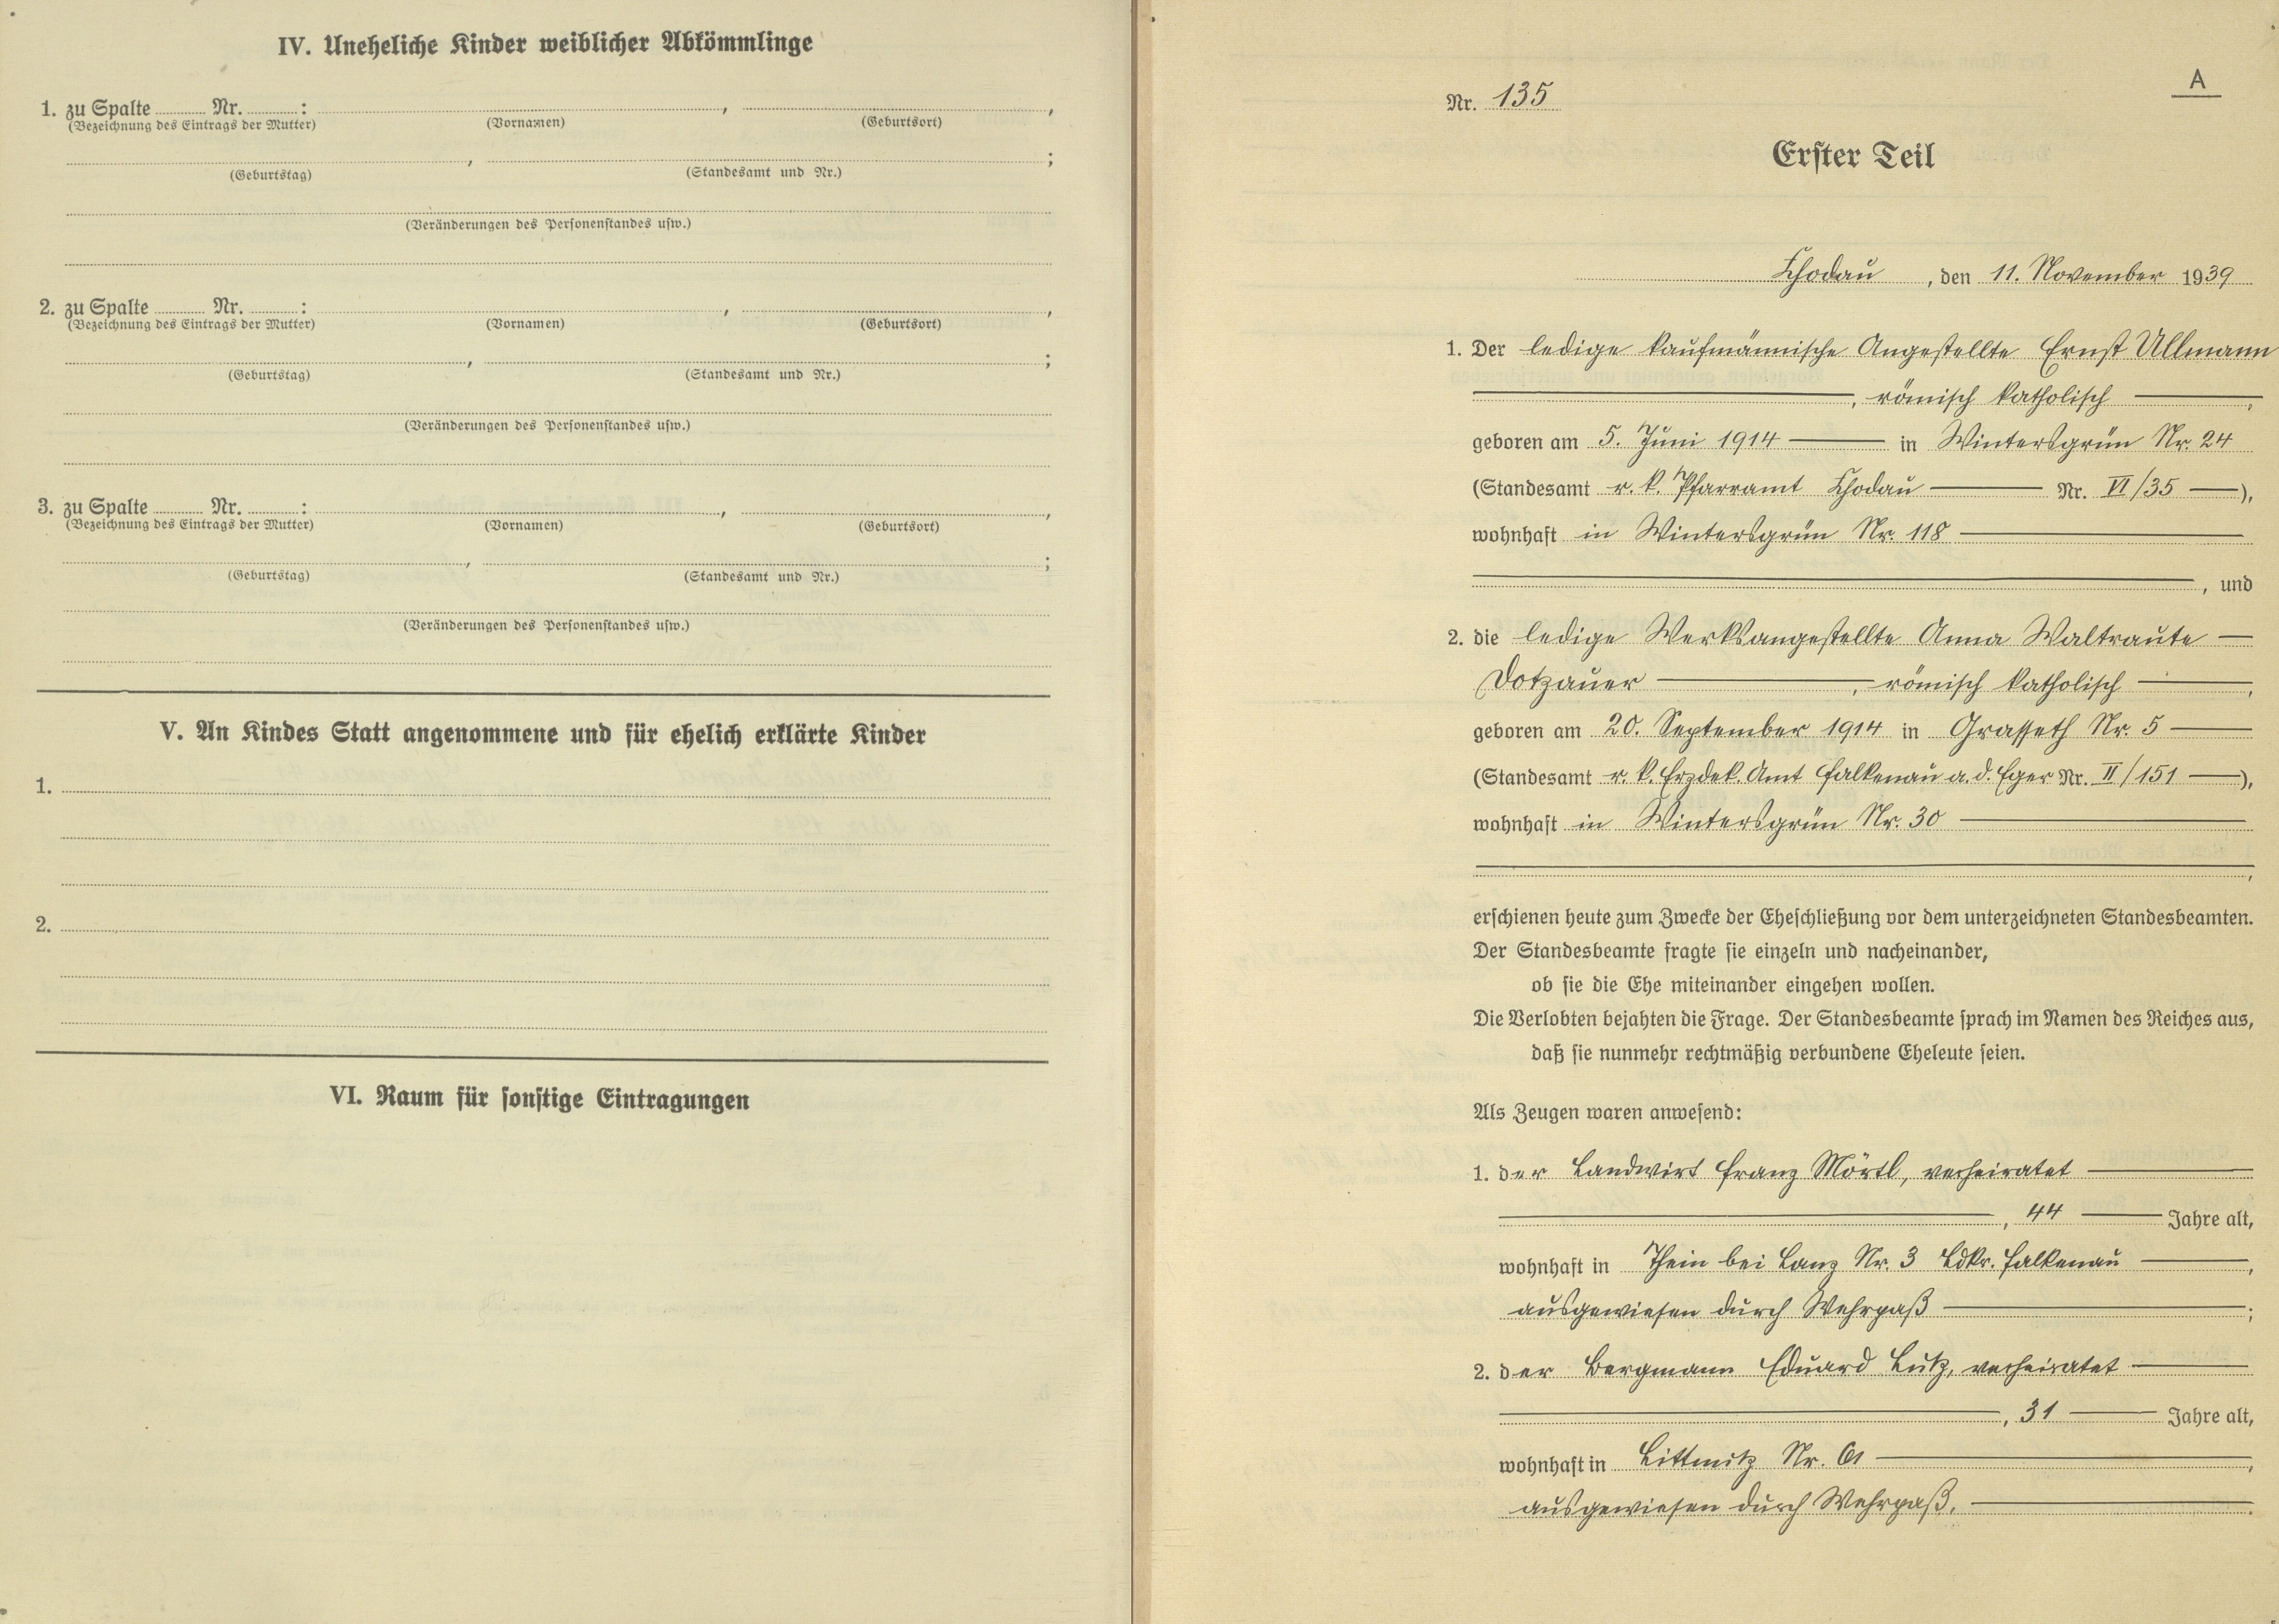 IV. Uneheliche Kinder weiblicher Abkömmlinge
1. zu Spalte ........ Nr. ........ : ........ , ........ ,
(Bezeichnung des Eintrags der Mutter) (Vornamen) (Geburtsort)
........ , ........ ;
(Geburtstag) (Standesamt und Nr.)
(Veränderungen des Personenstandes usw.)
2. zu Spalte ........ Nr. ........ : ........ , ........ ,
(Bezeichnung des Eintrags der Mutter) (Vornamen) (Geburtsort)
........ , ........ ;
(Geburtstag) (Standesamt und Nr.)
(Veränderungen des Personenstandes usw.)
3. zu Spalte ........ Nr. ........ : ........ , ........ ,
(Bezeichnung des Eintrags der Mutter) (Vornamen) (Geburtsort)
........ , ........ ;
(Geburtstag) (Standesamt und Nr.)
(Veränderungen des Personenstandes usw.)
V. An Kindes Statt angenommene und für ehelich erklärte Kinder
1.
2.
VI. Raum für sonstige Eintragungen
A
Nr. 135
Erster Teil
Chodau, den 11. November 1939
1. Der ledige kaufmännische Angestellte Ernst Ullmann
, römisch katholisch ,
geboren am 5. Juni 1914 in Wintersgrün Nr. 24
(Standesamt r. k. Pfarramt Chodau Nr. VI/35 ),
wohnhaft in Wintersgrün Nr. 118
, und
2. die ledige Werksangestellte Anna Waltraute
Dotzauer , römisch katholisch ,
geboren am 20. September 1914 in Grasseth Nr. 5
(Standesamt r. k. Erzdek. Amt Falkenau a. d. Eger Nr. II/151 ),
wohnhaft in Wintersgrün Nr. 30
,
erschienen heute zum Zwecke der Eheschließung vor dem unterzeichneten Standesbeamten.
Der Standesbeamte fragte sie einzeln und nacheinander,
ob sie die Ehe miteinander eingehen wollen.
Die Verlobten bejahten die Frage. Der Standesbeamte sprach im Namen des Reiches aus,
daß sie nunmehr rechtmäßig verbundene Eheleute seien.
Als Zeugen waren anwesend:
1. der Landwirt Franz Mörtl, verheiratet
, 44 Jahre alt,
wohnhaft in Thein bei Lanz Nr. 3 Ldkr. Falkenau ,
ausgewiesen durch Wehrpaß ;
2. der Bergmann Eduard Lutz, verheiratet
, 31 Jahre alt,
wohnhaft in Littmitz Nr. 61 ,
ausgewiesen durch Wehrpaß.